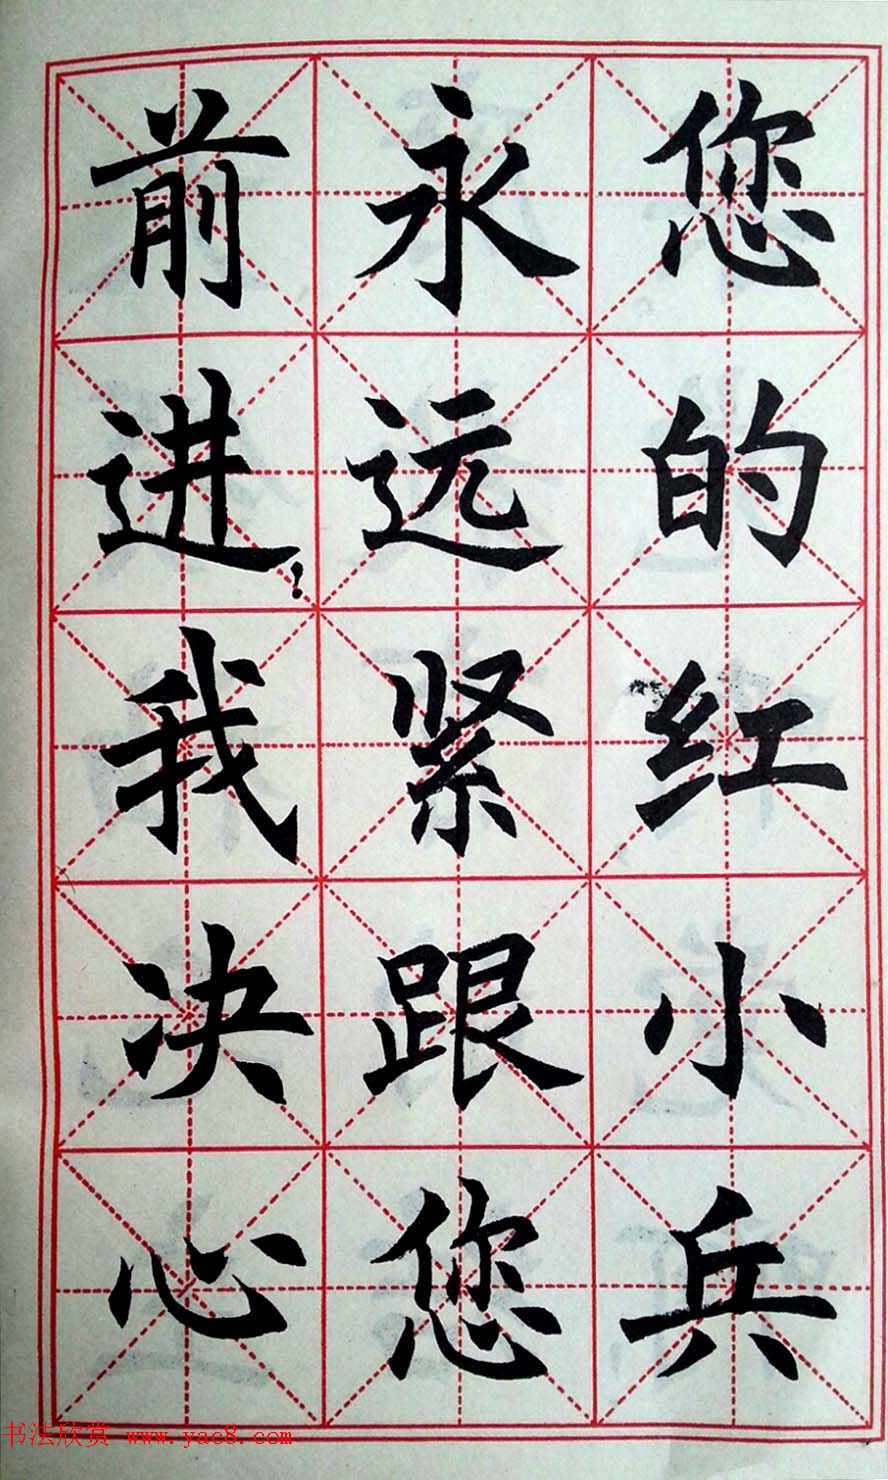 您的红小兵
永远紧跟您
前进！我决心
书法欣赏 www.yac8.com